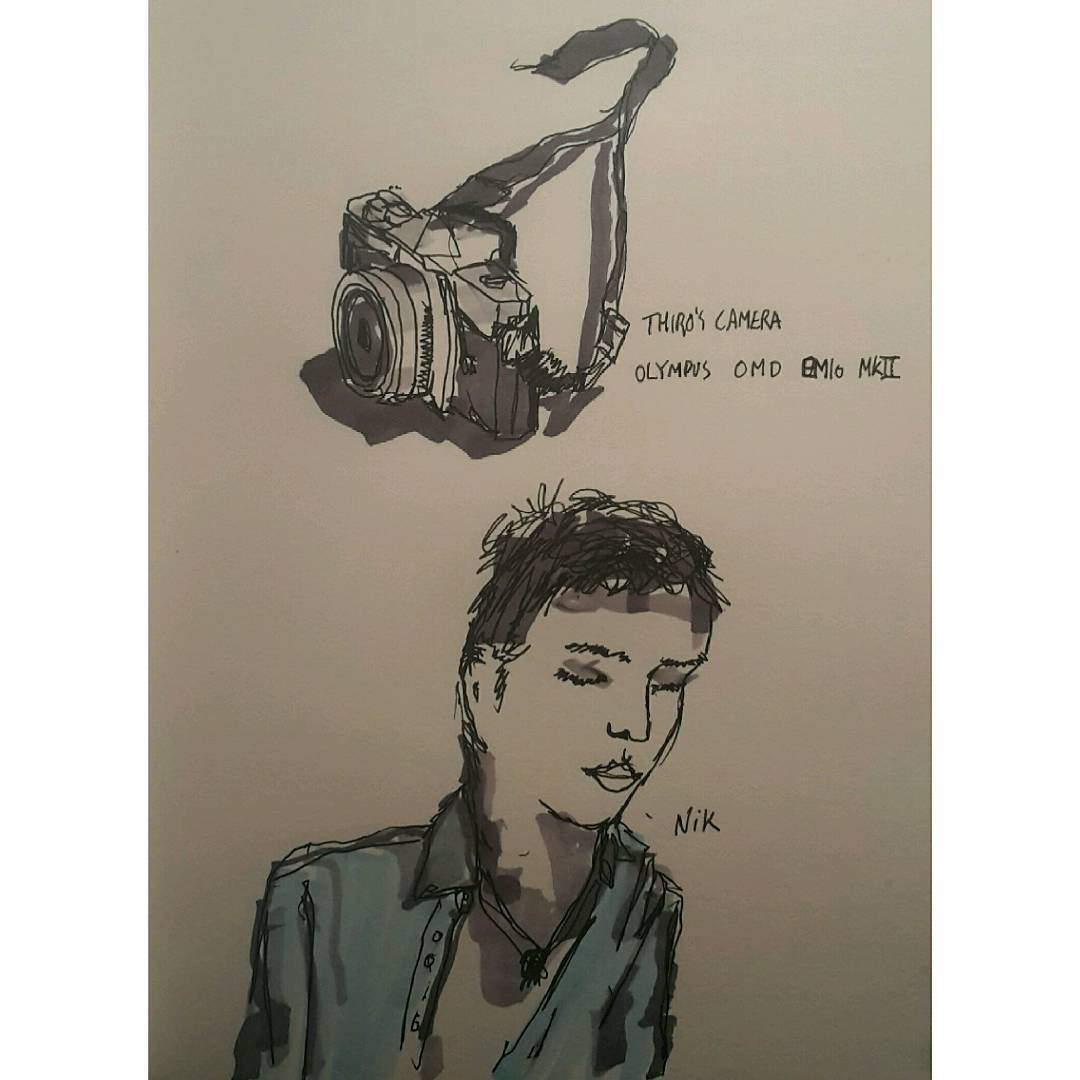 THIRO'S CAMERA
OLYMPUS OMD EM10 MKII
NiK